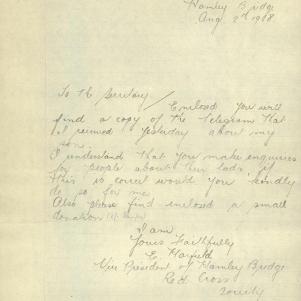 Hamley Bridge
Aug 2nd 1918
To the Secretary
Enclosed you will
find a copy of the Telegram that
I received yesterday about my
son.
I understand that you make enquiries
for people about their lads, if
this is correct would you kindly
do so for me
Also please find enclosed a small
donation
I am
Yours Faithfully
E. Hayfield
Vice President of Hamley Bridge
Red Cross
Society